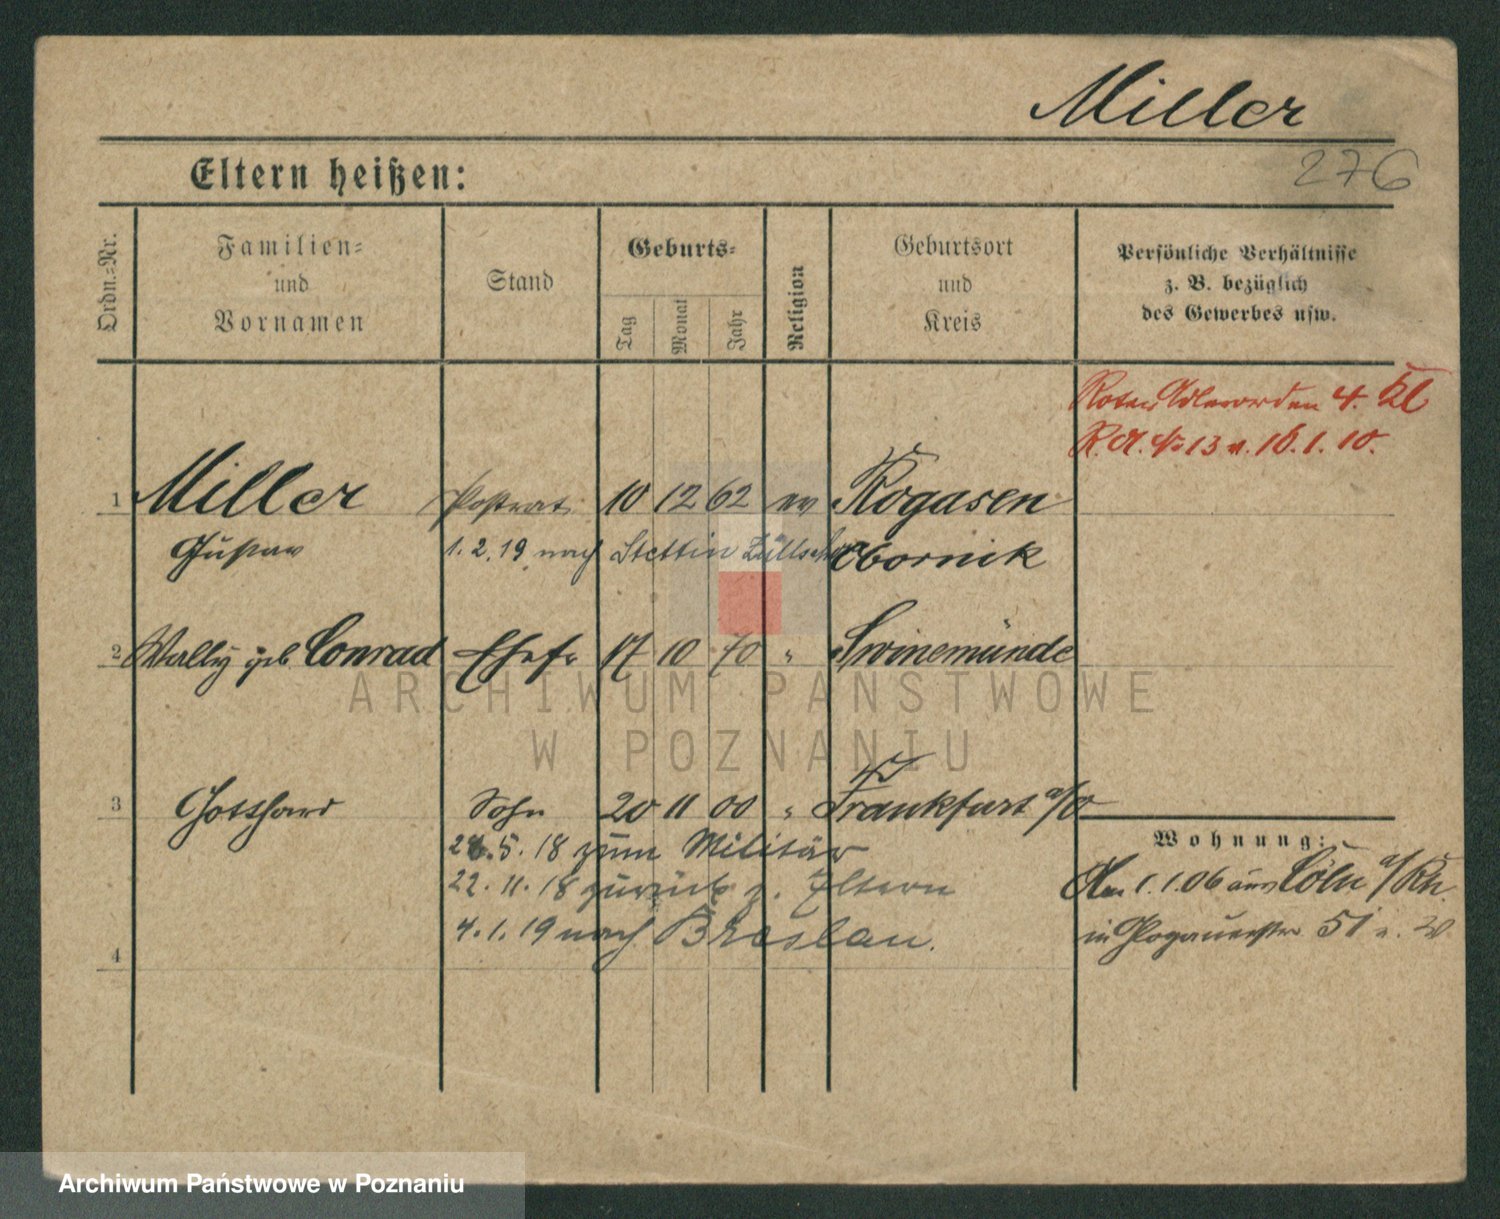 Miller
276
Eltern heißen:
Ordn.-Nr.
Familien-
und
Vornamen
Stand
Geburts-
Tag
Monat
Jahr
Religion
Geburtsort
und
Kreis
Persönliche Verhältnisse
z. B. bezüglich
des Gewerbes usw.
Roter Adlerorden 4. Kl
R.A. № 13 v. 16.1.10.
1 Miller Postrat 10 12 62 ev Rogasen
Gustav 1.2.19 nach Stettin Züllchow Obornik
2 Wally geb. Conrad Ehefr 17 10 70 " Swinemünde
3 Gotthard Sohn 20 11 00 " Frankfurt a/O
28.5.18 zum Militär
22.11.18 zurück z. Eltern
4.1.19 nach Breslau.
4
Wohnung:
Am 1.1.06 aus Cöln a/Rh.
in Glogauerstr 51
ARCHIWUM PAŃSTWOWE
W POZNANIU
Archiwum Państwowe w Poznaniu